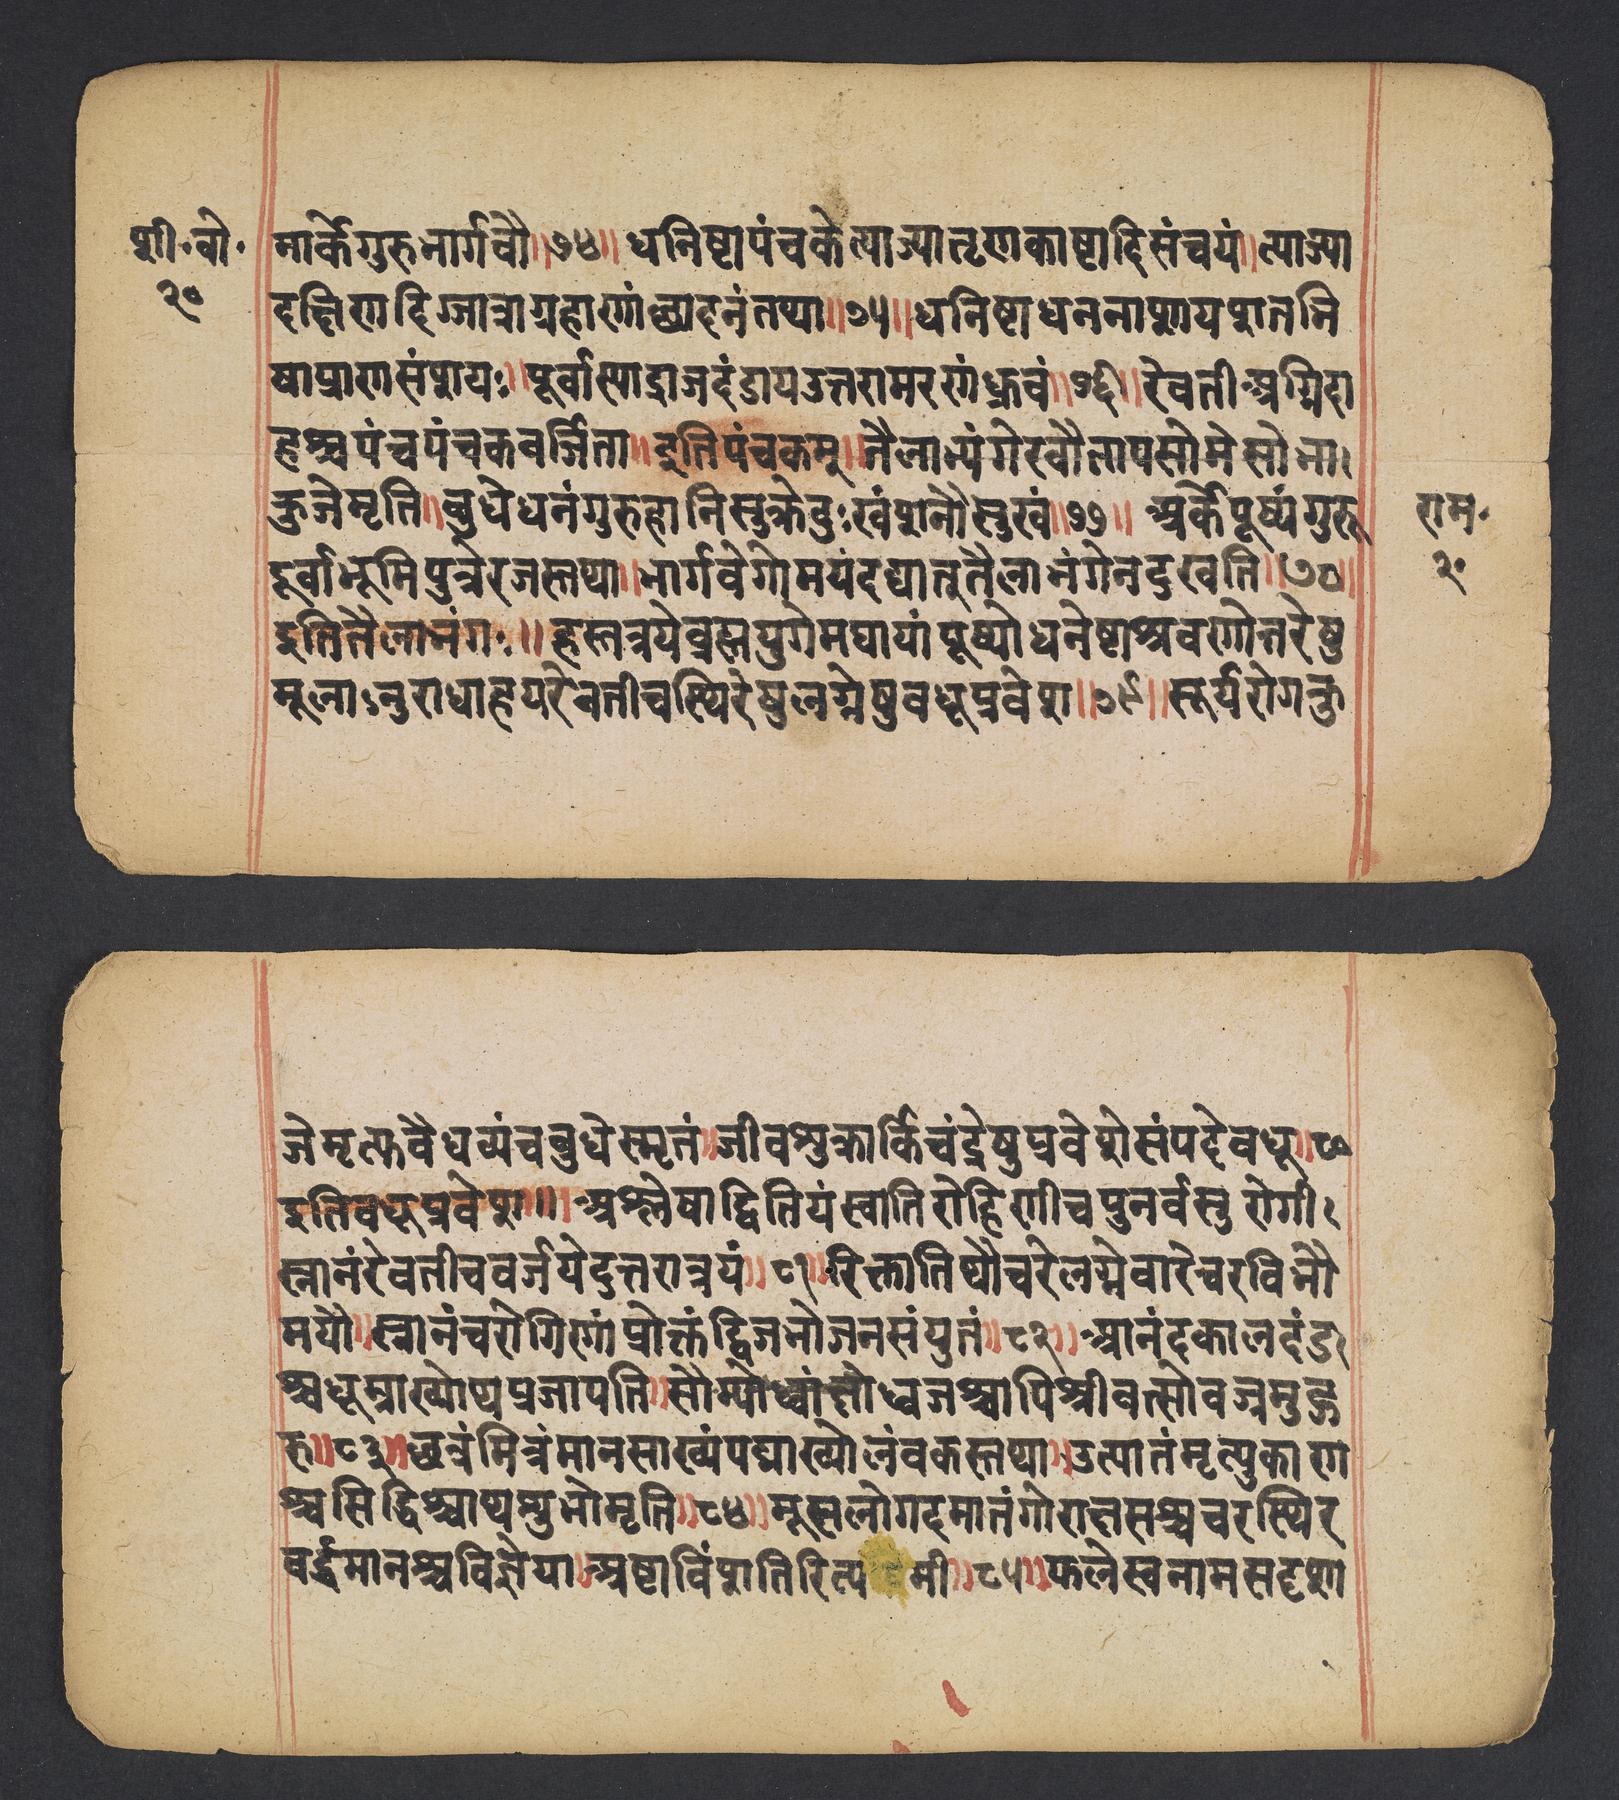 शी॰बो॰
२०
मार्केगुरुभार्गवौ॥७४॥धनिष्टापंचकेत्याज्यातृणकाष्टादिसंचयं॥त्याज्या
दक्षिणादिग्जात्राग्रहाणांछादनंतथा॥७५॥धनिष्टाधननाशायशतभि
षाप्राणसंशयः॥पूर्वास्याद्राजदंडायउत्तरामरणंध्रुवं॥७६॥रेवतीअग्निदा
हश्चपंचपंचकवर्जिता॥इतिपंचकम्॥तैलाभ्यंगेरवौतापसोमेसोभा।
कुजेमृति॥बुधेधनंगुरुहानिसुक्रेदुःखंशनौसुखं॥७७॥अर्केपूष्यंगुरू
दूर्वाभूमिपुत्रेरजस्तथा॥भार्गवेगोमयंदद्यातुतैलाभंगेनदुखति॥७८॥
इतितैलाभंगः॥हस्तत्रयेब्रह्मयुगेमघायांपूष्योधनेष्टाश्रवणोत्तरेषु
मूलाऽनुराधाहयरेवतीचस्थिरेषुलग्नेषुवधूप्रवेश॥७९॥सूर्यरोगक्तु
राम॰
२॰
जेमृत्फवैधव्यंचबुधेस्मृतं॥जीवशुक्रार्किचंद्रेषुप्रवेशेसंपदेवधू॥८०
इतिवधूप्रवेश॥अश्लेषाद्वितियंस्वातिरोहिणीचपुनर्वसुरोगी।
स्नानंरेवतीचवर्जयेदुत्तरात्रयं॥८१॥रिक्तातिथौचरेलग्नेवारेचरविभौ
मयौ॥स्नानंचरोगिणांप्रोक्तंद्विजभोजनसंयुतं॥८२॥आनंदकालदंड।
श्चधूम्राख्योथप्रजापति॥सौम्योध्वांक्षोध्वजश्चापिश्रीवत्सोवज्रमुद्ग
रु॥८३॥छत्रंमित्रंमानसाख्यंपद्माख्योलंवकस्तथा॥उत्पातंमृत्युकाण
श्चसिद्धिश्चाथशुभोमृति॥८४॥मूसलोगदमातंगोराक्षसश्चचरस्थिर
वर्द्धमानश्चविज्ञेया॥अष्टाविंशतिरित्य मी॥८५॥फलेस्वनामसदृशा